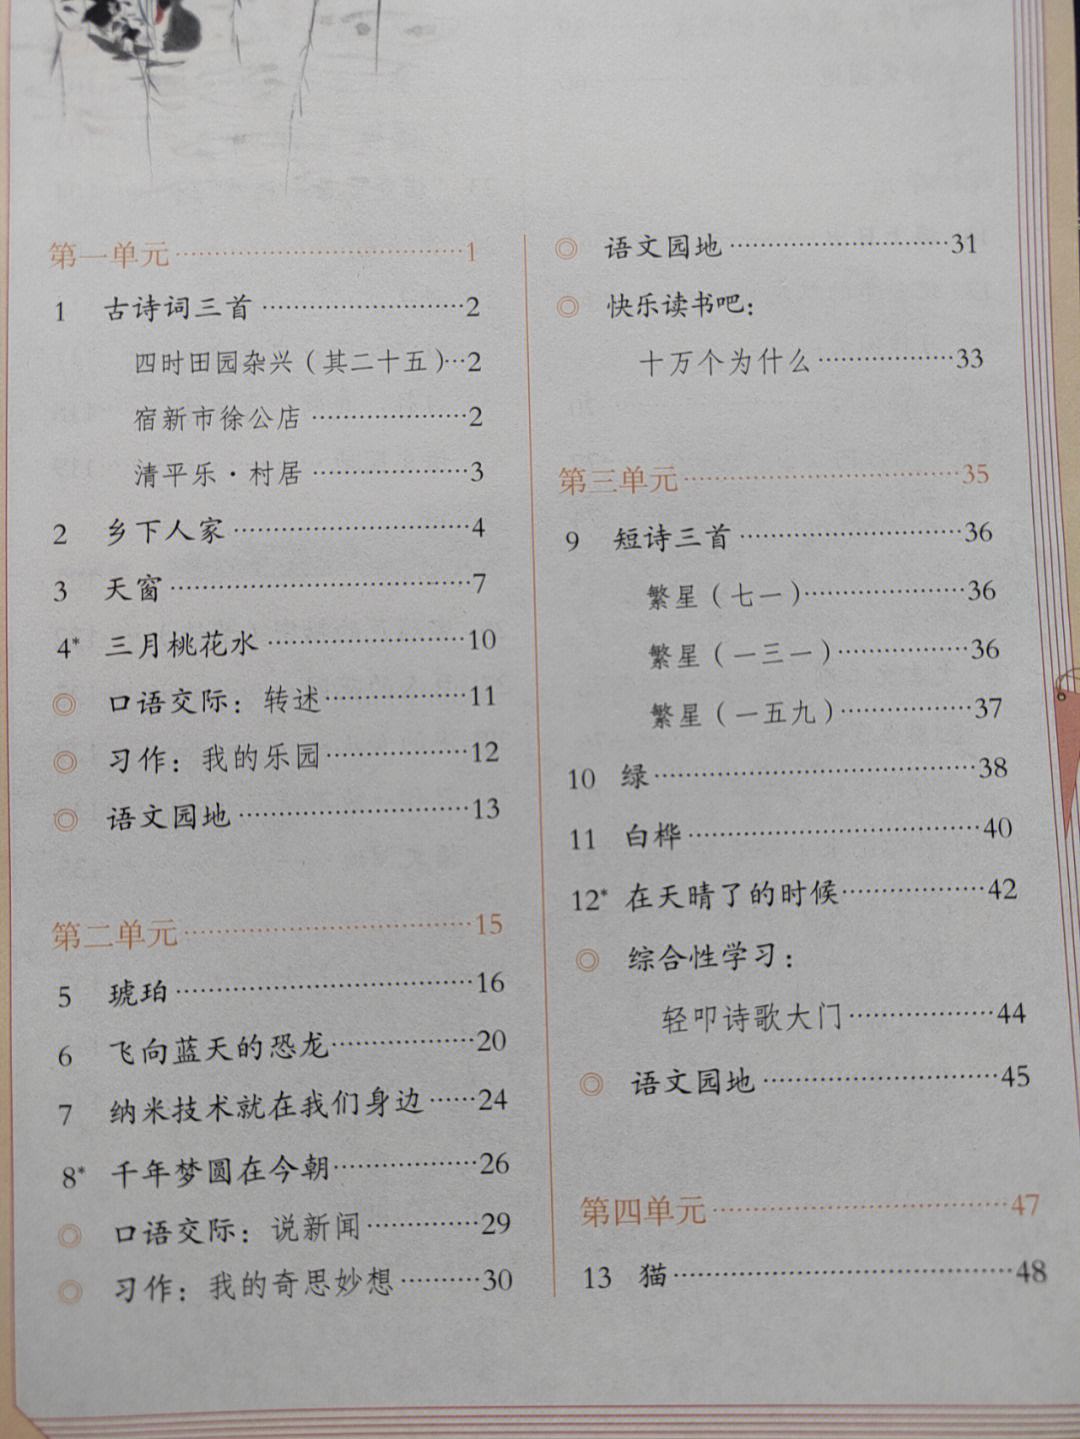 第一单元……1
1 古诗词三首……2
四时田园杂兴（其二十五）…2
宿新市徐公店……2
清平乐·村居……3
2 乡下人家……4
3 天窗……7
4* 三月桃花水……10
◎ 口语交际：转述……11
◎ 习作：我的乐园……12
◎ 语文园地……13
第二单元……15
5 琥珀……16
6 飞向蓝天的恐龙……20
7 纳米技术就在我们身边……24
8* 千年梦圆在今朝……26
◎ 口语交际：说新闻……29
◎ 习作：我的奇思妙想……30
◎ 语文园地……31
◎ 快乐读书吧：
十万个为什么……33
第三单元……35
9 短诗三首……36
繁星（七一）……36
繁星（一三一）……36
繁星（一五九）……37
10 绿……38
11 白桦……40
12* 在天晴了的时候……42
◎ 综合性学习：
轻叩诗歌大门……44
◎ 语文园地……45
第四单元……47
13 猫……48